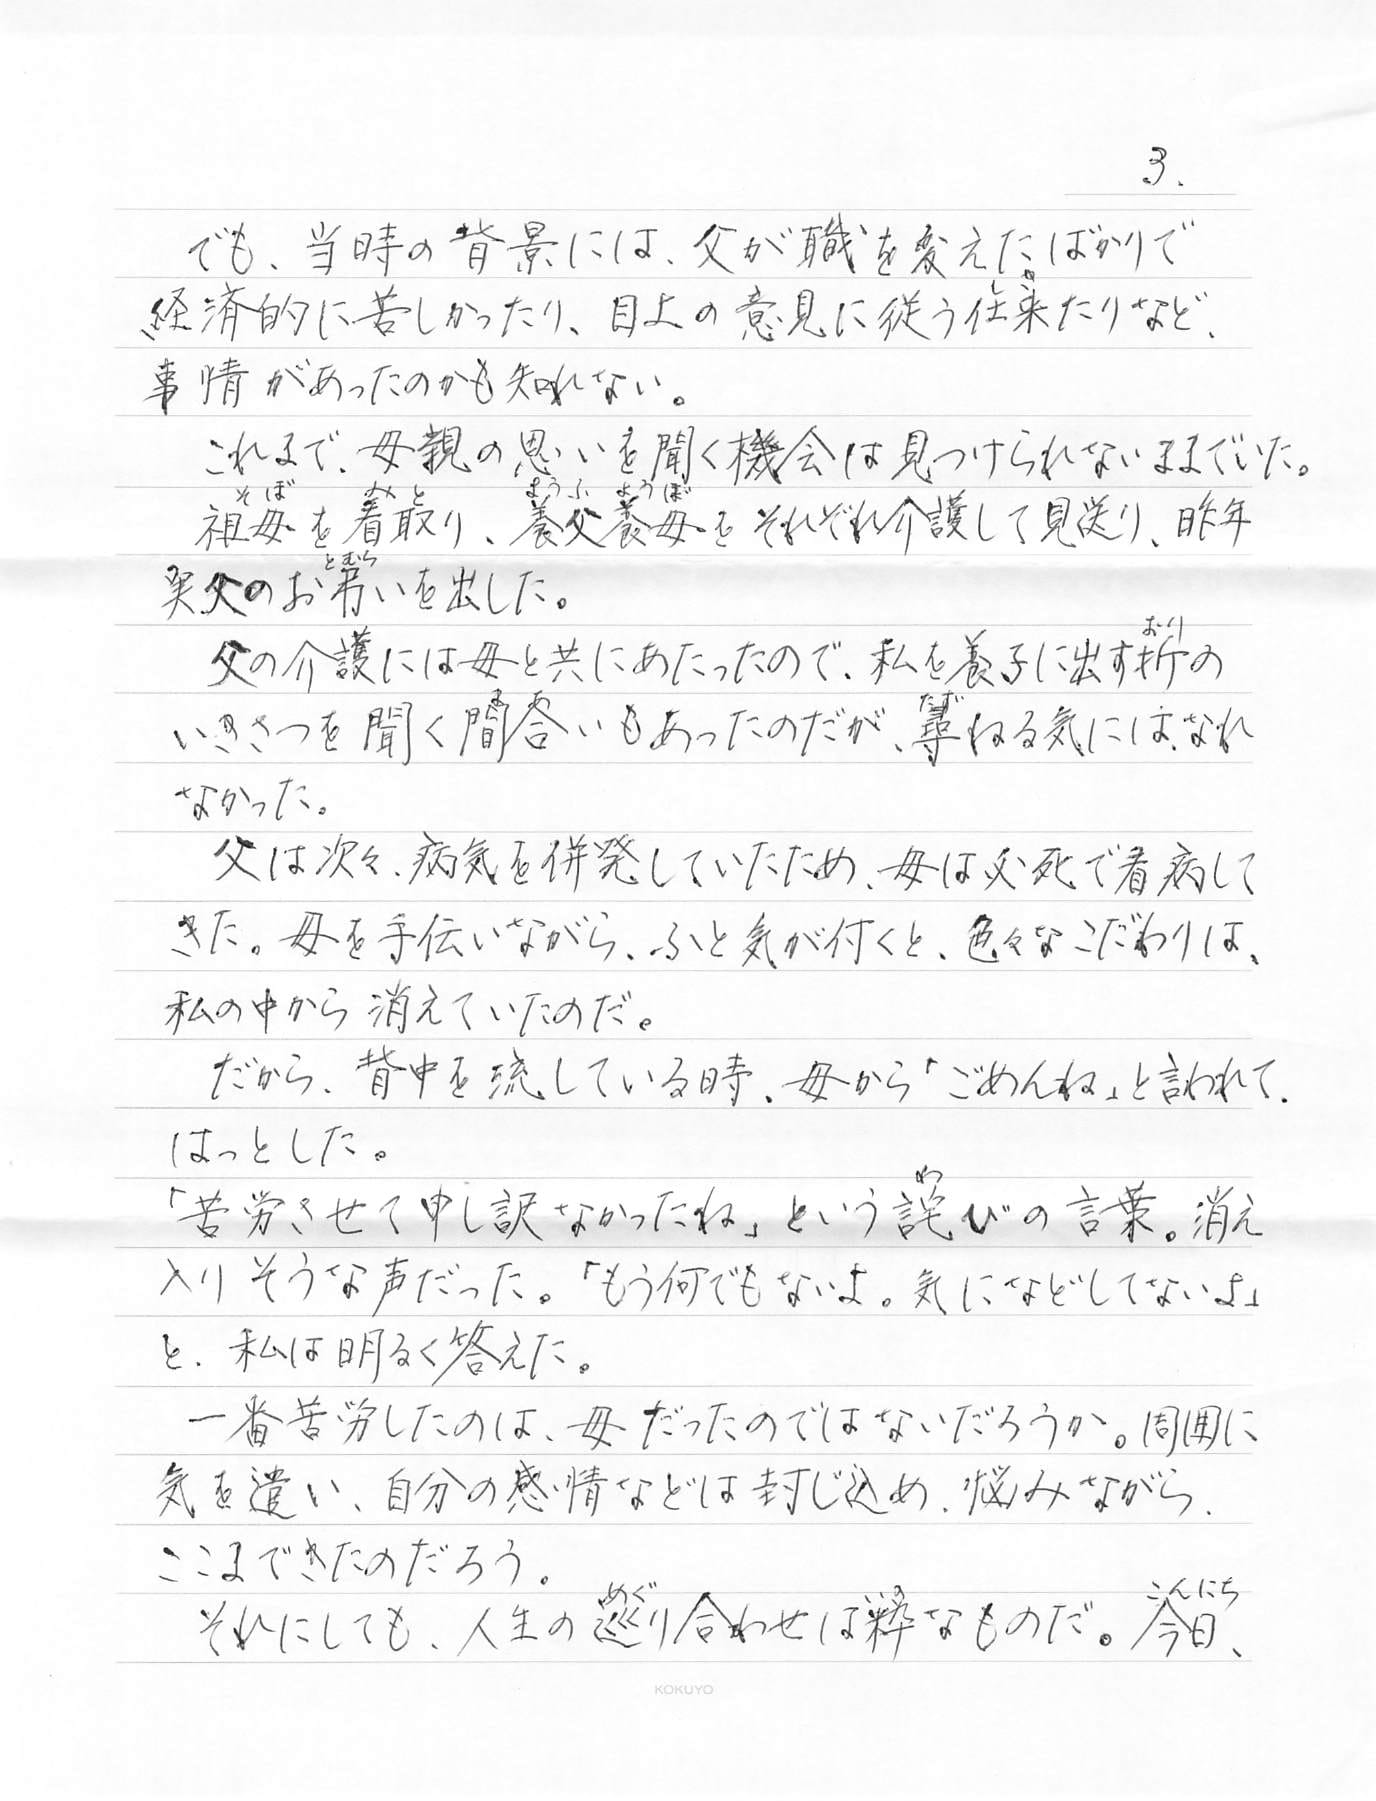 3.
でも、当時の背景には、父が職を変えたばかりで
経済的に苦しかったり、目上の意見に従う仕来たりなど、
事情があったのかも知れない。
これまで、母親の思いを聞く機会は見つけられないままでいた。
そぼ みと ようふ ようぼ
祖母を看取り、養父養母をそれぞれ介護して見送り、昨年
とむら
実父のお弔いを出した。
おり
父の介護には母と共にあたったので、私を養子に出す折の
まあ たず
いきさつを聞く間合いもあったのだが、尋ねる気にはなれ
なかった。
父は次々、病気を併発していたため、母は必死で看病して
きた。母を手伝いながら、ふと気が付くと、色々なこだわりは、
私の中から消えていたのだ。
だから、背中を流している時、母から「ごめんね」と言われて、
はっとした。
わ
「苦労させて申し訳なかったね」という詫びの言葉。消え
入りそうな声だった。「もう何でもないよ。気になどしてないよ」
と、私は明るく答えた。
一番苦労したのは、母だったのではないだろうか。周囲に
気を遣い、自分の感情などは封じ込め、悩みながら、
ここまできたのだろう。
めぐ こんにち
それにしても、人生の巡り合わせは粋なものだ。今日、
KOKUYO